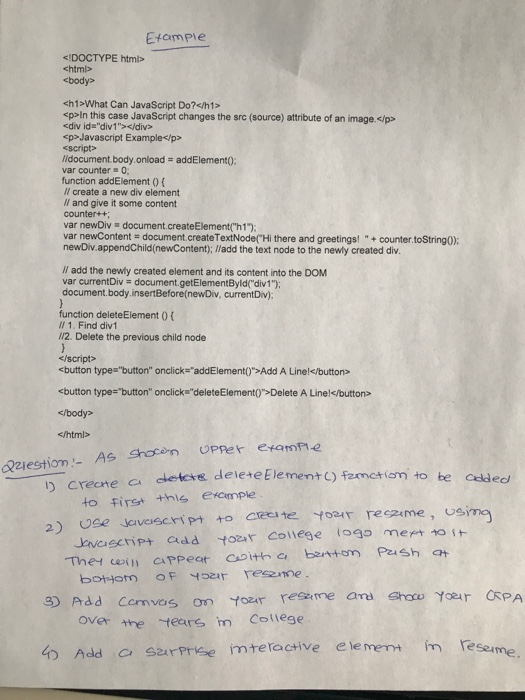 Example
<!DOCTYPE html>
<html>
<body>
<h1>What Can JavaScript Do?</h1>
<p>In this case JavaScript changes the src (source) attribute of an image.</p>
<div id="div1"></div>
<p>Javascript Example</p>
<script>
//document.body.onload = addElement();
var counter = 0;
function addElement () {
// create a new div element
// and give it some content
counter++;
var newDiv = document.createElement("h1");
var newContent = document.createTextNode("Hi there and greetings! " + counter.toString());
newDiv.appendChild(newContent); //add the text node to the newly created div.
// add the newly created element and its content into the DOM
var currentDiv = document.getElementById("div1");
document.body.insertBefore(newDiv, currentDiv);
}
function deleteElement () {
// 1. Find div1
//2. Delete the previous child node
}
</script>
<button type="button" onclick="addElement()">Add A Line!</button>
<button type="button" onclick="deleteElement()">Delete A Line!</button>
</body>
</html>
Question:- As shown upper example
1) create a deleteElement() function to be added
to first this example.
2) Use Javascript to create your resume, using
Javascript add your college logo next to it
They will appear with a button push at
bottom of your resume.
3) Add canvas on your resume and show your CGPA
over the years in college.
4) Add a surprise interactive element in resume.